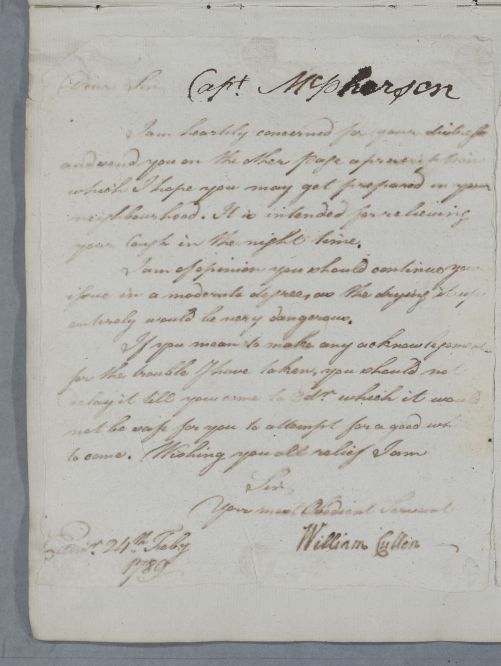 Dear Sir
Capt. McPherson
I am heartily concerned for your distress
and send you on the other page a prescription
which I hope you may get prepared in your
neighbourhood. It is intended for relieving
your Cough in the night time.
I am of opinion you should continue your
issue in a moderate degree, as the drying it up
entirely would be very dangerous.
If you mean to make any acknowledgement
for the trouble I have taken, you should not
delay it till you come to Edr. which it would
not be safe for you to attempt for a good whi
to come. Wishing you all relief I am
Sir
Your most Obedient Servant
William Cullen
24th. Feby
1789